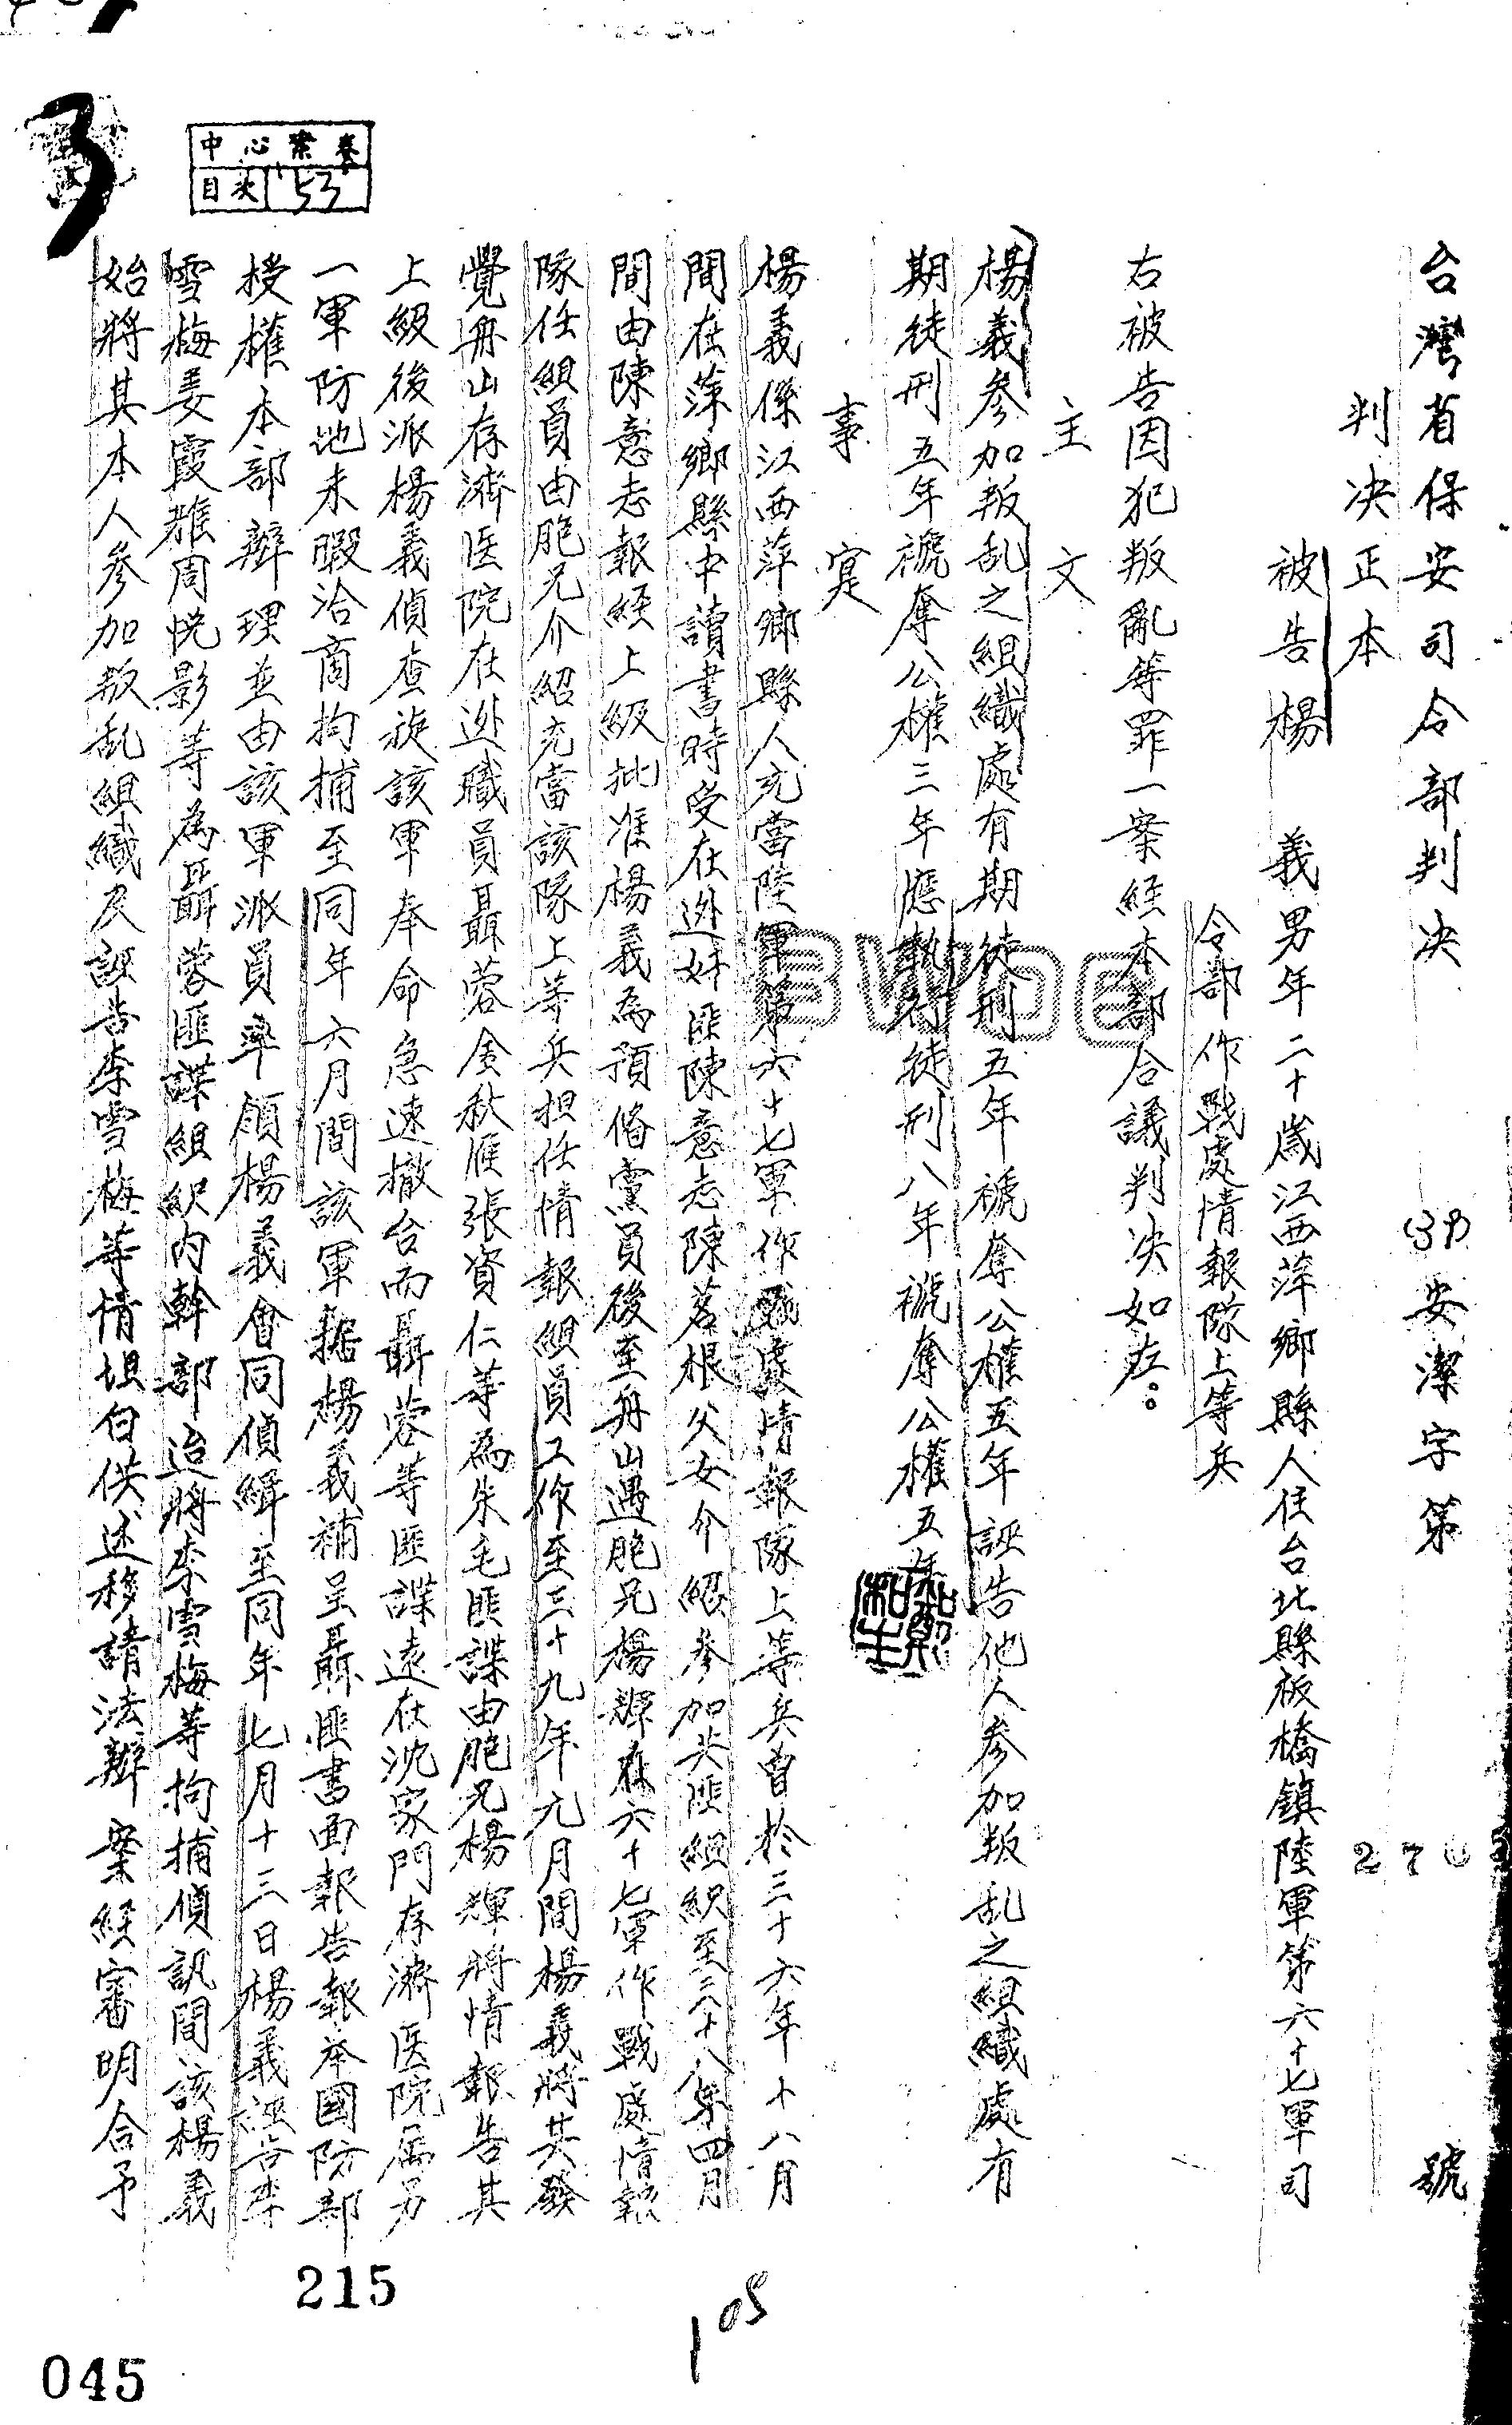 中心案卷
目次 53
台灣省保安司令部判決 (39)安潔字第 270 號
判決正本
被告楊 義男年二十歲江西萍鄉縣人住台北縣板橋鎮陸軍第六十七軍司
令部作戰處情報隊上等兵
右被告因犯叛亂等罪一案経本部合議判决如左：
主 文
楊義参加叛乱之組織處有期徒刑五年褫奪公權五年誣告他人参加叛乱之組織處有
期徒刑五年褫奪公權三年應執行徒刑八年褫奪公權五年
事 實
楊義係江西萍鄉縣人充當陸軍第六十七軍作戰處情報隊上等兵曾於三十六年十八月
間在萍鄉縣中讀書時受在逃奸匪陳意志陳茗根父女介紹参加共匪組織至三十八年四月
間由陳意志報経上級批准楊義為預俻黨員後至舟山遇胞兄楊輝在六十七軍作戰處情報
隊任組員由胞兄介紹充當該隊上等兵担任情報組員工作至三十九年元月間楊義將其發
覺舟山存濟医院在逃職員聶蓉金秋雁張資仁等為朱毛匪諜由胞兄楊輝將情報告其
上級後派楊義偵查旋該軍奉命急速撤台而聶蓉等匪諜遠在沈家門存濟医院屬另
一軍防地未暇洽商拘捕至同年六月間該軍据楊義補呈聶匪書面報告報奉國防部
授權本部辦理並由該軍派員率領楊義會同偵緝至同年七月十三日楊義誣告李
雪梅姜霞雅周悦影等為聶蓉匪諜組織内幹部迨將李雪梅等拘捕偵訊間該楊義
始將其本人参加叛乱組織及誣告李雪梅等情坦白供述移請法辦 案経審明合予
215
105
045